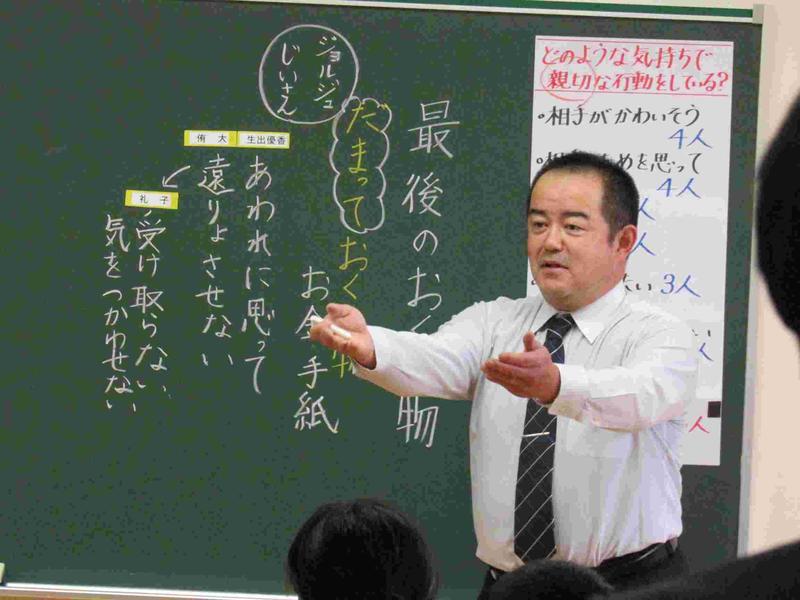 どのような気持ちで
親切な行動をしている?
•相手がかわいそう
4人
めを思って
4人
人
人
たい 3人
い
人
最後のおく 物
ジョルジュ
じいさん
だまっておく
お金 手紙
生出優香
侑 大
あわれに思って
遠りょさせない
礼 子
受け取らない
気をつかわせない